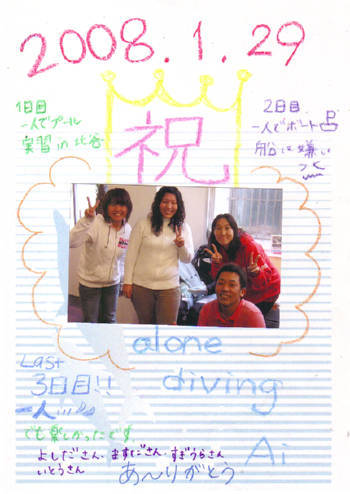 2008.1.29
祝
1日目
一人でプール
実習 in 北谷
2日目
一人でボート
船は嫌い
alone
diving
Ai
Last
3日目!!
一人
でも楽しかったです。
よしださん、ますださん、すぎうらさん
いとうさん
あ〜りがとう